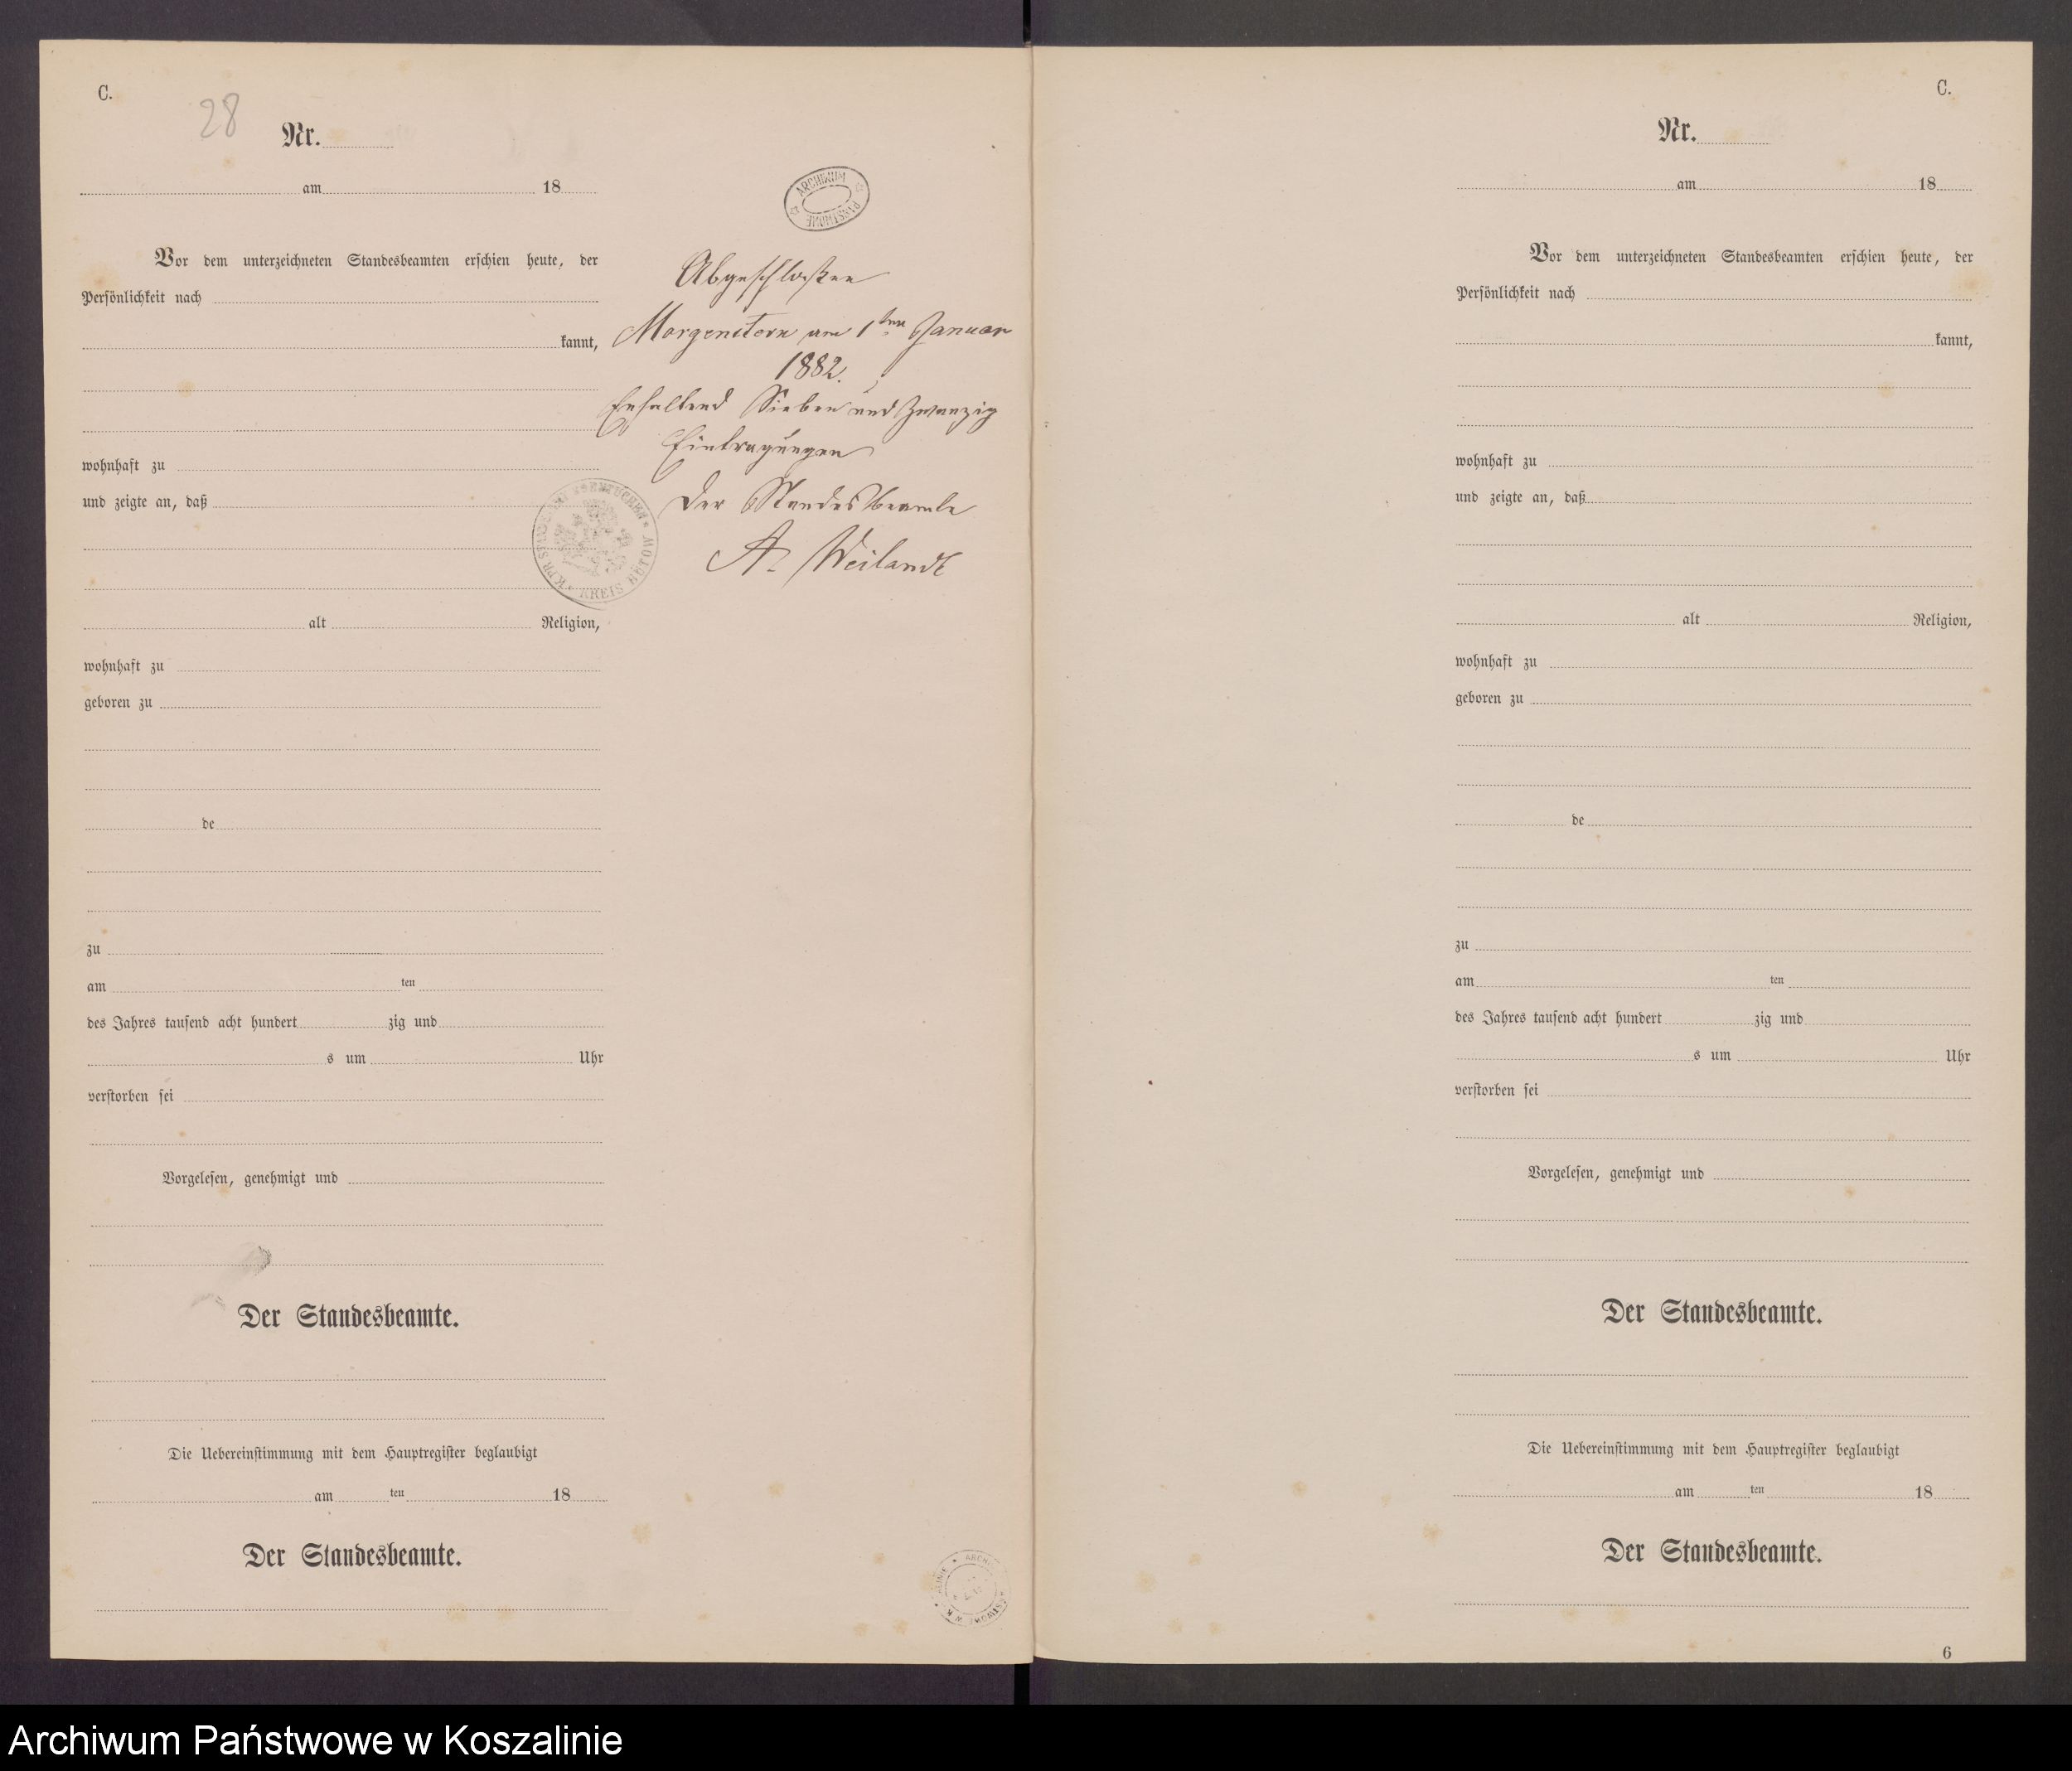 C.
28
Nr.
am 18
Vor dem unterzeichneten Standesbeamten erschien heute, der
Persönlichkeit nach
kannt,
wohnhaft zu
und zeigte an, daß
alt Religion,
wohnhaft zu
geboren zu
de
zu
am ten
des Jahres tausend acht hundert zig und
s um Uhr
verstorben sei
Vorgelesen, genehmigt und
Der Standesbeamte.
Die Uebereinstimmung mit dem Hauptregister beglaubigt
am ten 18
Der Standesbeamte.
ARCHIWUM
PAŃSTWOWE
Abgeschloßen
Morgenstern am 1ten Januar
1882.
Enhaltend Sieben und Zwanzig
Eintragungen
Der Standesbeamte
A. Weilandt
KREIS BÜTOW
C.
Nr.
am 18
Vor dem unterzeichneten Standesbeamten erschien heute, der
Persönlichkeit nach
kannt,
wohnhaft zu
und zeigte an, daß
alt Religion,
wohnhaft zu
geboren zu
de
zu
am ten
des Jahres tausend acht hundert zig und
s um Uhr
verstorben sei
Vorgelesen, genehmigt und
Der Standesbeamte.
Die Uebereinstimmung mit dem Hauptregister beglaubigt
am ten 18
Der Standesbeamte.
6
Archiwum Państwowe w Koszalinie